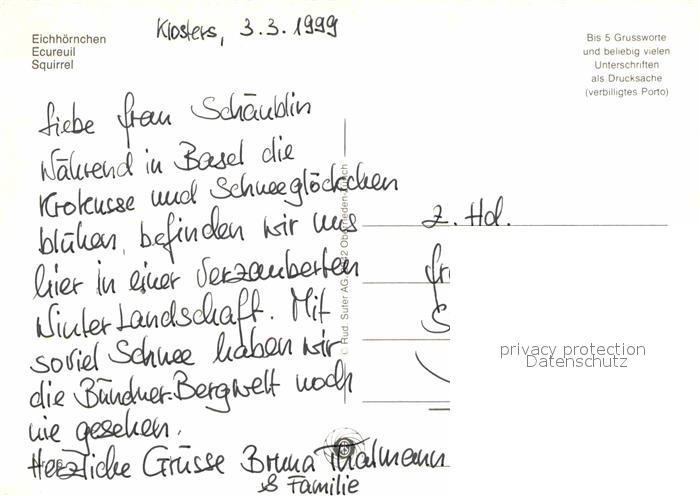 Klosters, 3.3.1999
Eichhörnchen
Ecureuil
Squirrel
Bis 5 Grussworte
und beliebig vielen
Unterschriften
als Drucksache
(verbilligtes Porto)
Liebe Frau Schäublin
Während in Basel die
Krokusse und Schneeglöckchen
blühen, befinden wir uns
hier in einer verzauberten
Winterlandschaft. Mit
soviel Schnee haben wir
die Bündner-Bergwelt noch
nie gesehen.
Herzliche Grüsse Bruna Thalmann
& Familie
© Rud. Suter AG,
z. Hd.
Fr
S
privacy protection
Datenschutz